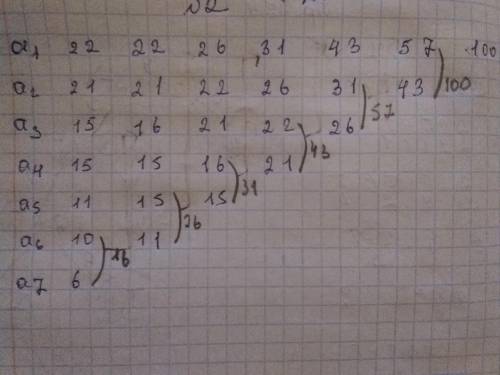 №2
a1 22 22 26 31 43 57 100
a2 21 21 22 26 31 43 100
a3 15 16 21 22 26 57
a4 15 15 16 21 43
a5 11 15 15 31
a6 10 11 26
a7 6 16